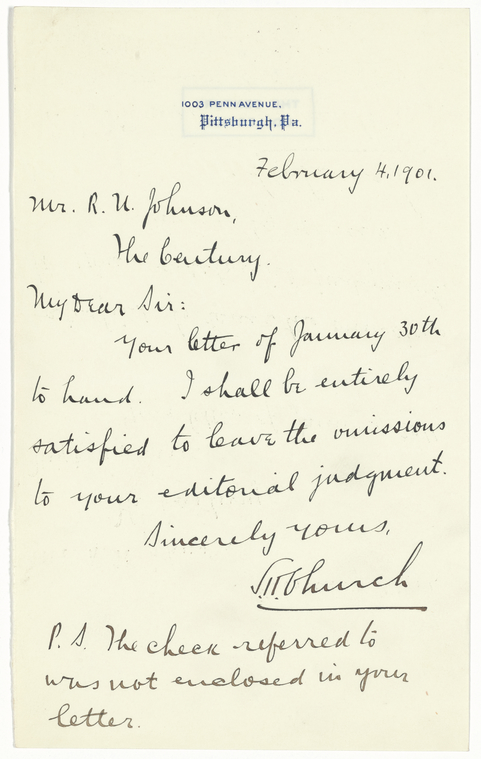 1003 PENN AVENUE,
Pittsburgh, Pa.
February 4, 1901.
Mr. R. U. Johnson,
The Century.
My Dear Sir:
Your letter of January 30th
to hand. I shall be entirely
satisfied to leave the omissions
to your editorial judgment.
Sincerely yours,
S.H. Church
P. S. The check referred to
was not enclosed in your
letter.